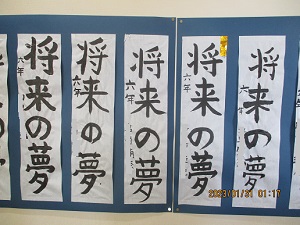 将来の夢
六年
将来の夢
六年
将来の夢
六年
将来の夢
六年
将来の夢
六年
2023/01/31 01:17